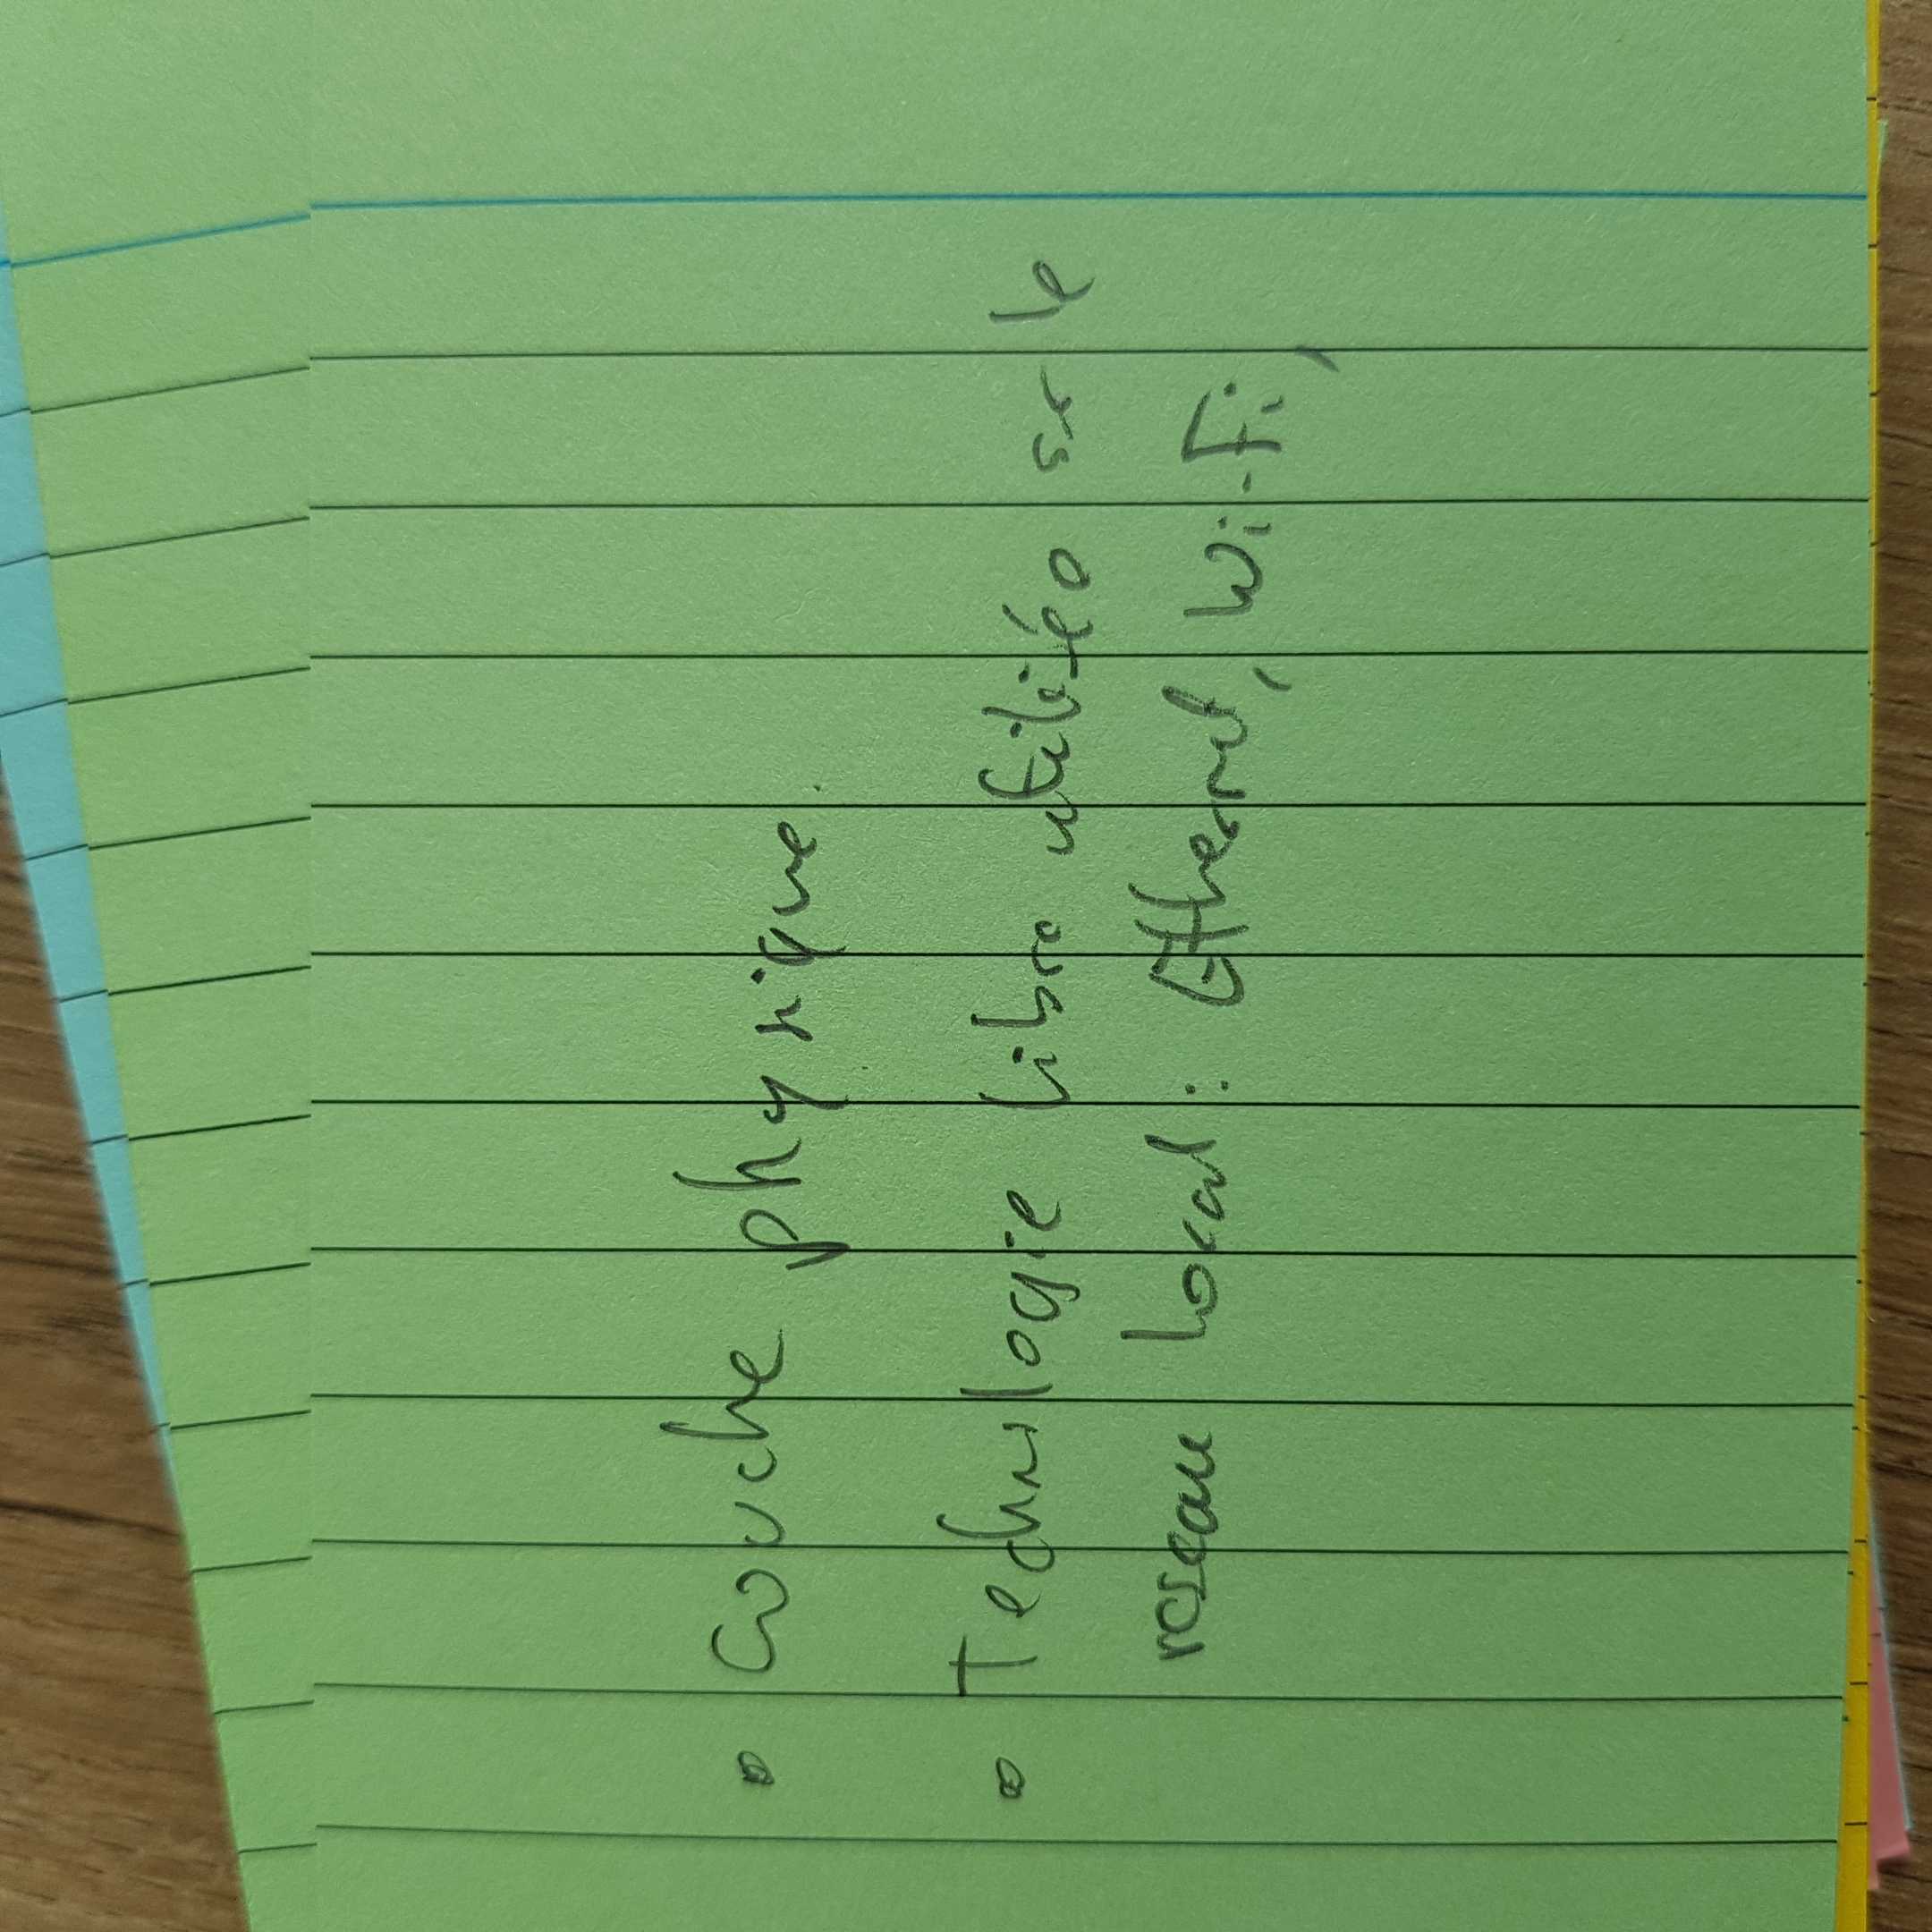 • Couche physique
• Technologie libre utilisée sur le
réseau local : Ethernet, Wi-Fi,